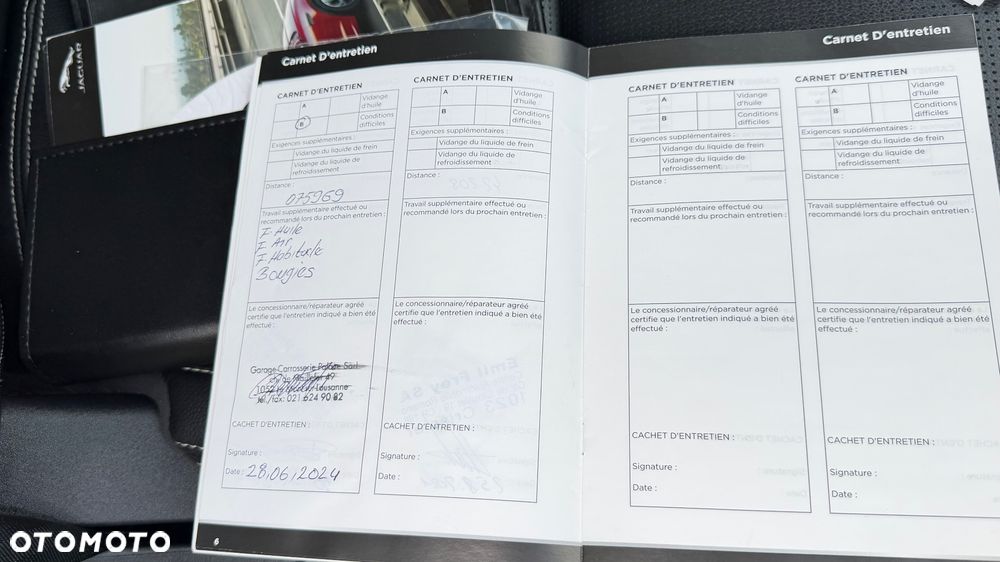 JAGUAR
Carnet D'entretien
CARNET D'ENTRETIEN
A
Vidange
d'huile
B
Conditions
difficiles
Exigences supplémentaires :
Vidange du liquide de frein
Vidange du liquide de
refroidissement
Distance :
075969
Travail supplémentaire effectué ou
recommandé lors du prochain entretien :
F. Huile
F. Air
F. Habitacle
Bougies
Le concessionnaire/réparateur agréé
certifie que l'entretien indiqué a bien été
effectué :
Garage Carrosserie
Lausanne
Tél./fax: 021 624 90 82
CACHET D'ENTRETIEN :
Signature :
Date : 28.06.2024
6
CARNET D'ENTRETIEN
A
Vidange
d'huile
B
Conditions
difficiles
Exigences supplémentaires :
Vidange du liquide de frein
Vidange du liquide de
refroidissement
Distance :
Travail supplémentaire effectué ou
recommandé lors du prochain entretien :
Le concessionnaire/réparateur agréé
certifie que l'entretien indiqué a bien été
effectué :
CACHET D'ENTRETIEN :
Signature :
Date :
Carnet D'entretien
CARNET D'ENTRETIEN
A
Vidange
d'huile
B
Conditions
difficiles
Exigences supplémentaires :
Vidange du liquide de frein
Vidange du liquide de
refroidissement
Distance :
Travail supplémentaire effectué ou
recommandé lors du prochain entretien :
Le concessionnaire/réparateur agréé
certifie que l'entretien indiqué a bien été
effectué :
CACHET D'ENTRETIEN :
Signature :
Date :
CARNET D'ENTRETIEN
A
Vidange
d'huile
B
Conditions
difficiles
Exigences supplémentaires :
Vidange du liquide de frein
Vidange du liquide de
refroidissement
Distance :
Travail supplémentaire effectué ou
recommandé lors du prochain entretien :
Le concessionnaire/réparateur agréé
certifie que l'entretien indiqué a bien été
effectué :
CACHET D'ENTRETIEN :
Signature :
Date :
OTOMOTO